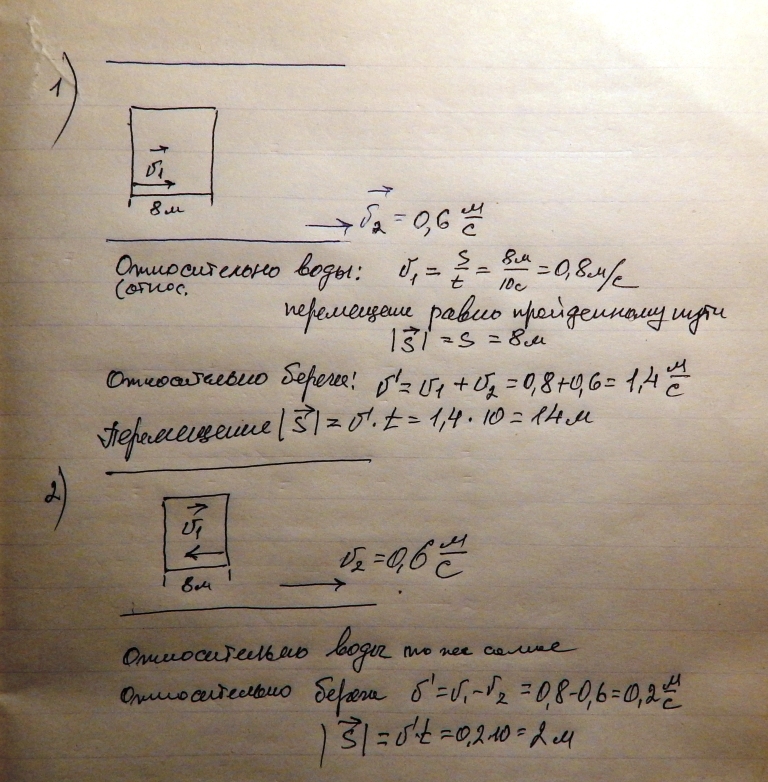 1)
v⃗₁
8м
v⃗₂ = 0,6 м/с
Относительно воды: v₁ = S/t = 8м/10с = 0,8 м/с
(относ.
перемещение равно пройденному пути
|S⃗| = S = 8м
Относительно берега: v' = v₁ + v₂ = 0,8 + 0,6 = 1,4 м/с
Перемещение |S⃗| = v' · t = 1,4 · 10 = 14 м
2)
v⃗₁
8м
v₂ = 0,6 м/с
Относительно воды то же самое
Относительно берега v' = v₁ - v₂ = 0,8 - 0,6 = 0,2 м/с
|S⃗| = v'·t = 0,2·10 = 2 м